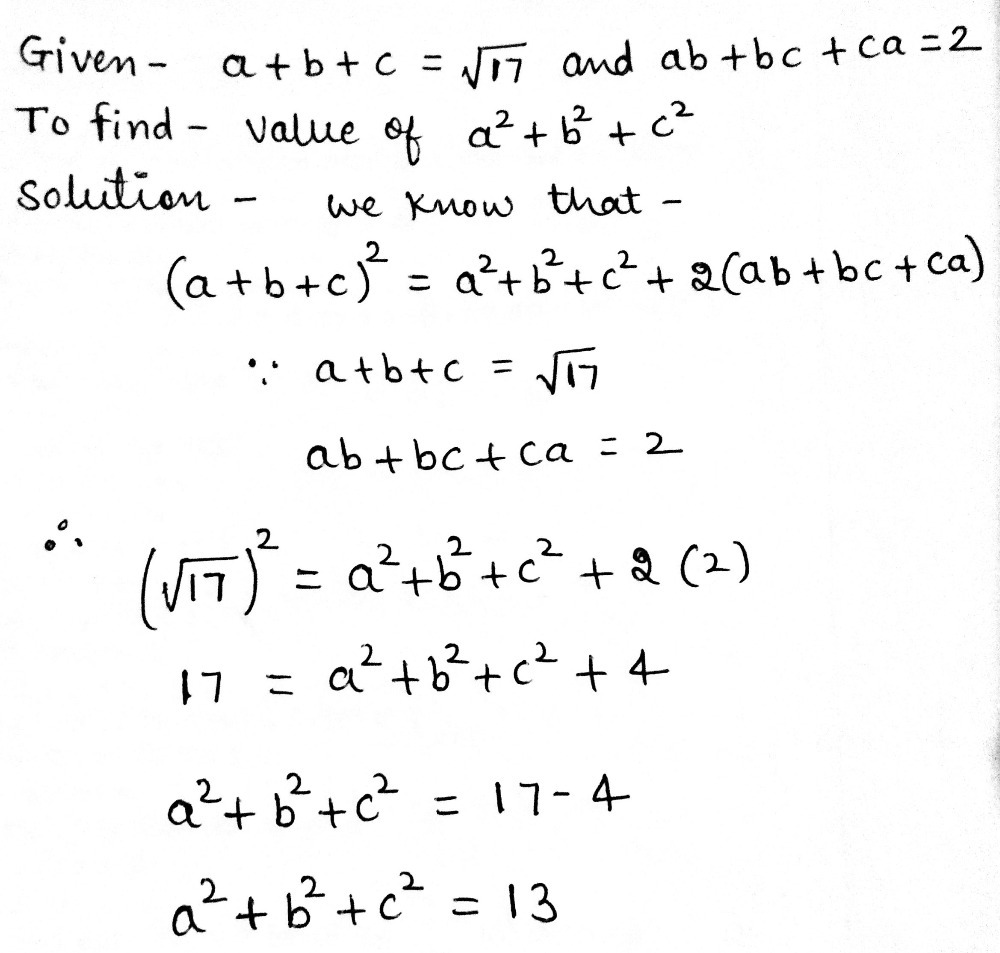 Given - a + b + c = √17 and ab + bc + ca = 2
To find - value of a² + b² + c²
Solution - we know that -
(a + b + c)² = a² + b² + c² + 2(ab + bc + ca)
∵ a + b + c = √17
ab + bc + ca = 2
∴ (√17)² = a² + b² + c² + 2 (2)
17 = a² + b² + c² + 4
a² + b² + c² = 17 - 4
a² + b² + c² = 13